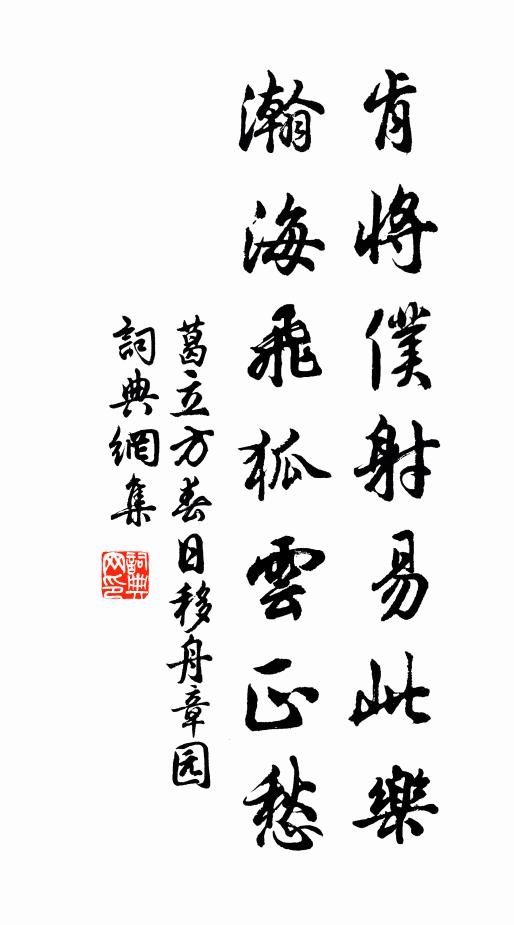 肯將僕射易此樂
瀚海飛狐雲正愁
葛立方春日移舟章园
詞典網集
詞典網印